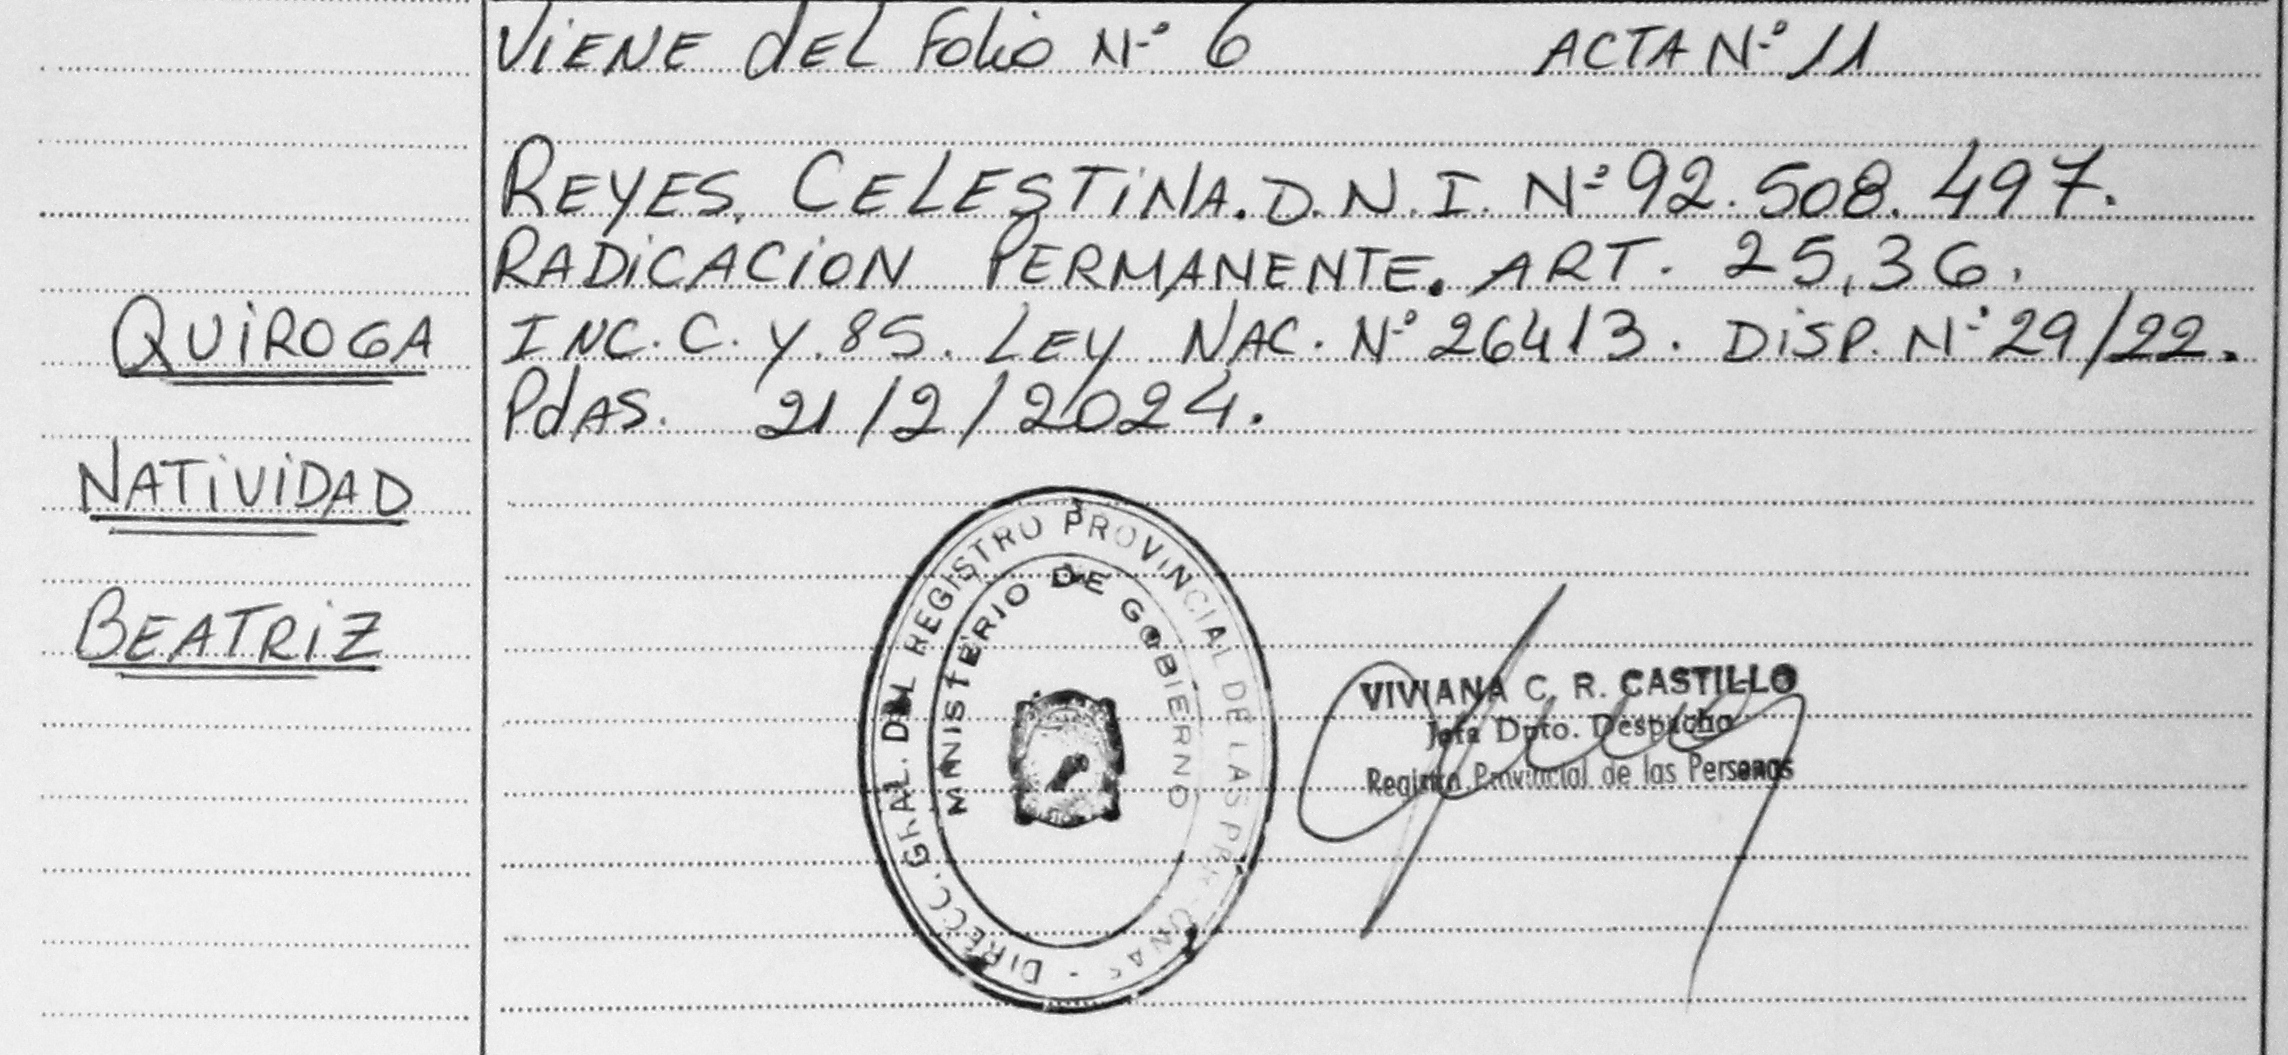 ViENE dEL Folio Nº 6 ACTA Nº 11
REYES, CELESTiNA. D.N.I. Nº 92.508.497.
RADiCACiON PERMANENTE. ART. 25,36.
INC. C. Y. 85. LEY NAC. Nº 26413. DiSP. Nº 29/22.
PdAS. 21/2/2024.
QUiROGA
NATiViDAD
BEATRiZ
DIRECC. GRAL. DEL REGISTRO PROVINCIAL DE LAS
MINISTERIO DE GOBIERNO
VIVIANA C. R. CASTILLO
Jefa Dpto. Despacho
Registro Provincial de las Personas